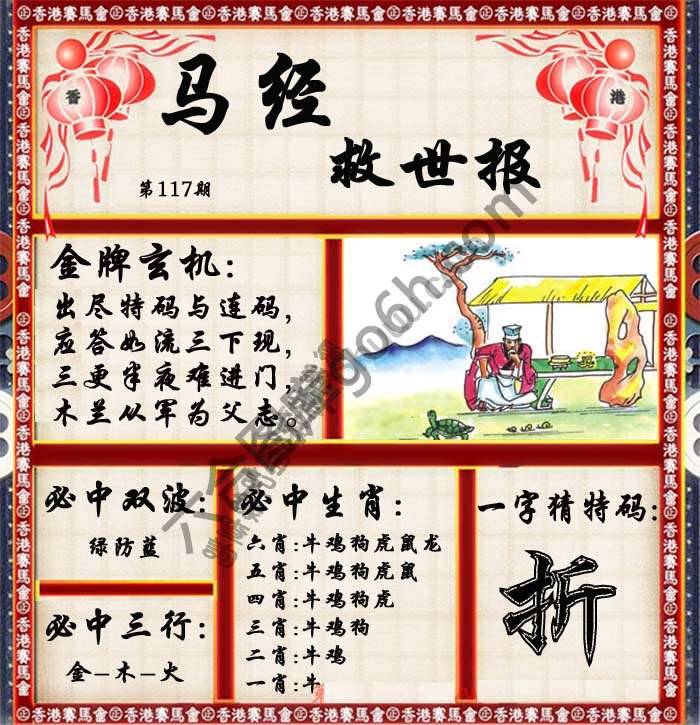 香港賽馬會
香
港
马经
救世报
第117期
金牌玄机:
出尽特码与连码，
应答如流三下现，
三更半夜难进门，
木兰从军为父志。
必中双波:
绿防蓝
必中三行:
金-木-火
必中生肖:
六肖:牛鸡狗虎鼠龙
五肖:牛鸡狗虎鼠
四肖:牛鸡狗虎
三肖:牛鸡狗
二肖:牛鸡
一肖:牛
一字猜特码:
折